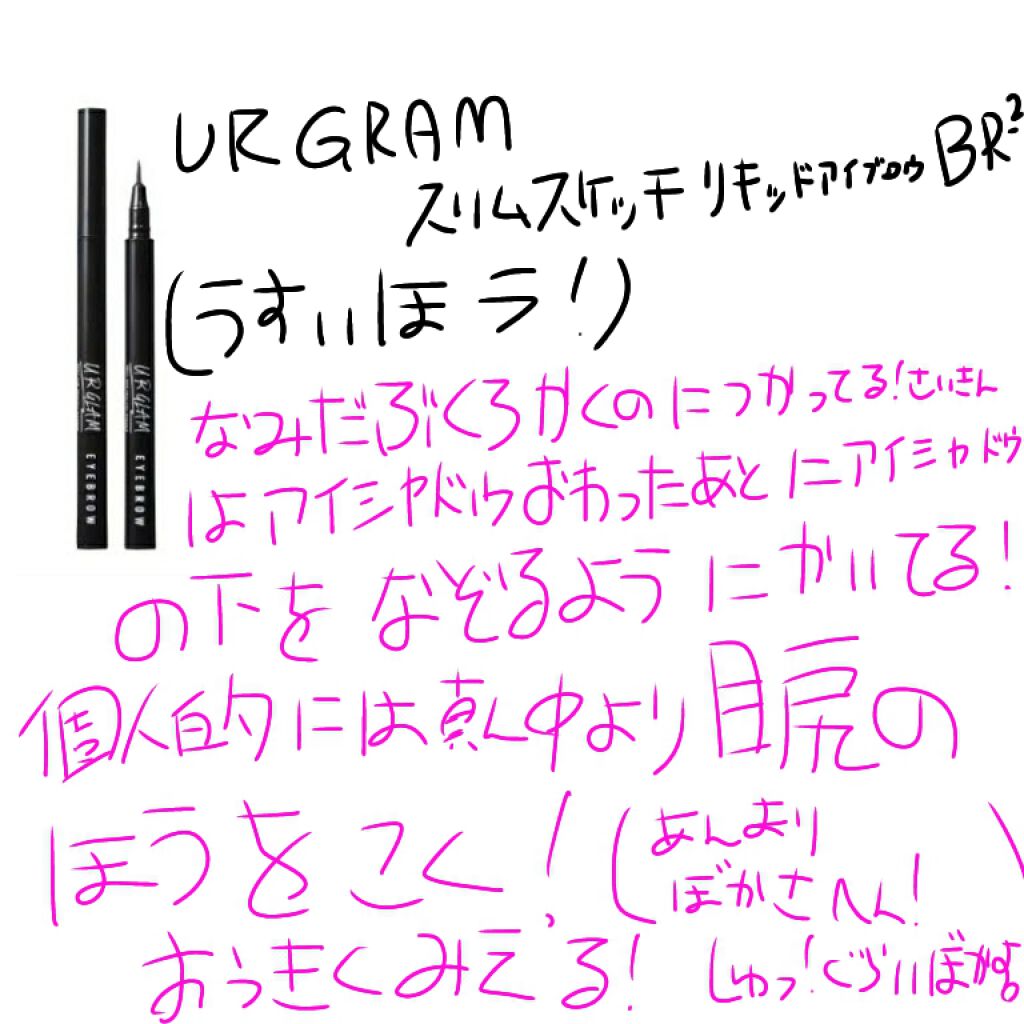 UR GRAM
スリムスケッチ リキッドアイブロウ BR-2
(うすいほう!)
なみだぶくろかくのにつかってる!さいきん
はアイシャドウおわったあとにアイシャドウ
の下をなぞるようにかいてる!
個人的には真ん中より目尻の
ほうをこく!
(あんまり
ぼかさへん!
しゅっ!ぐらいぼかす)
おっきくみえる!
URGLAM EYEBROW
URGLAM EYEBROW